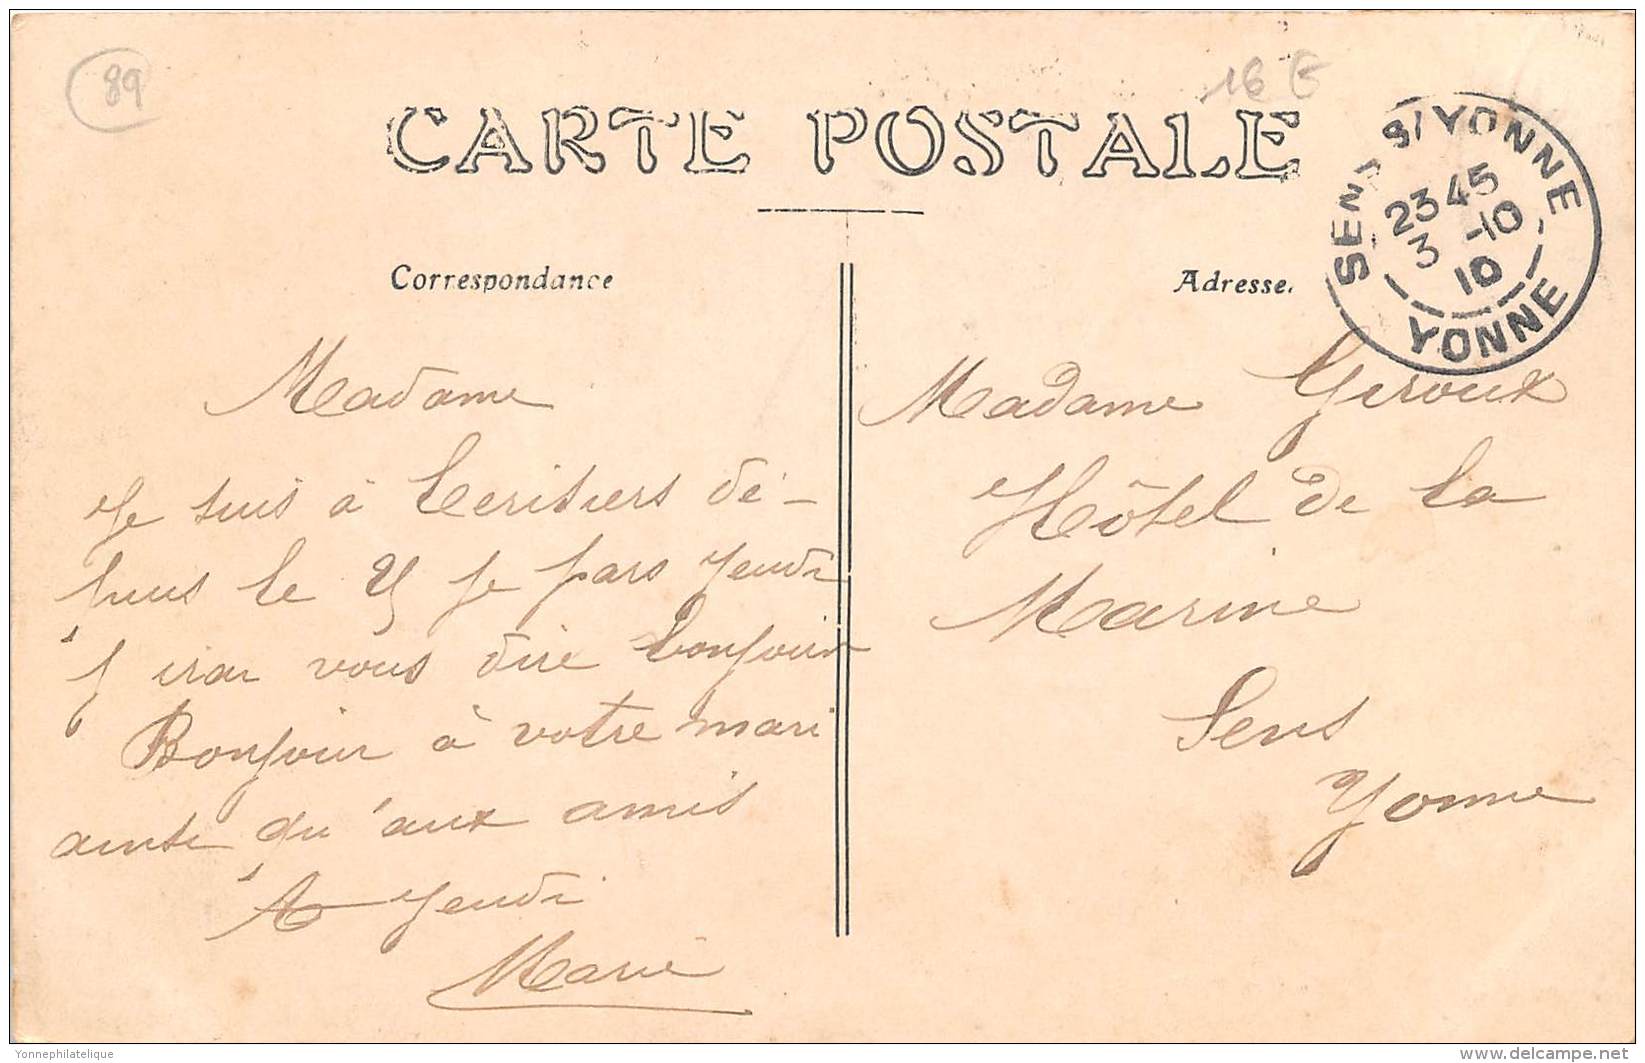 89
16 E
CARTE POSTALE
SENS S/YONNE
23 45
3 -10
10
YONNE
Correspondance
Adresse.
Madame
Je suis à Cerisiers dé-
puis le je pars jeudi
j'irai vous dire bonjour
Bonjour à votre mari
ainsi qu'aux amis
A jeudi
Marie
Madame Giroux
Hôtel de la
Marine
Sens
Yonne
Yonnephilatelique
delcampe.net